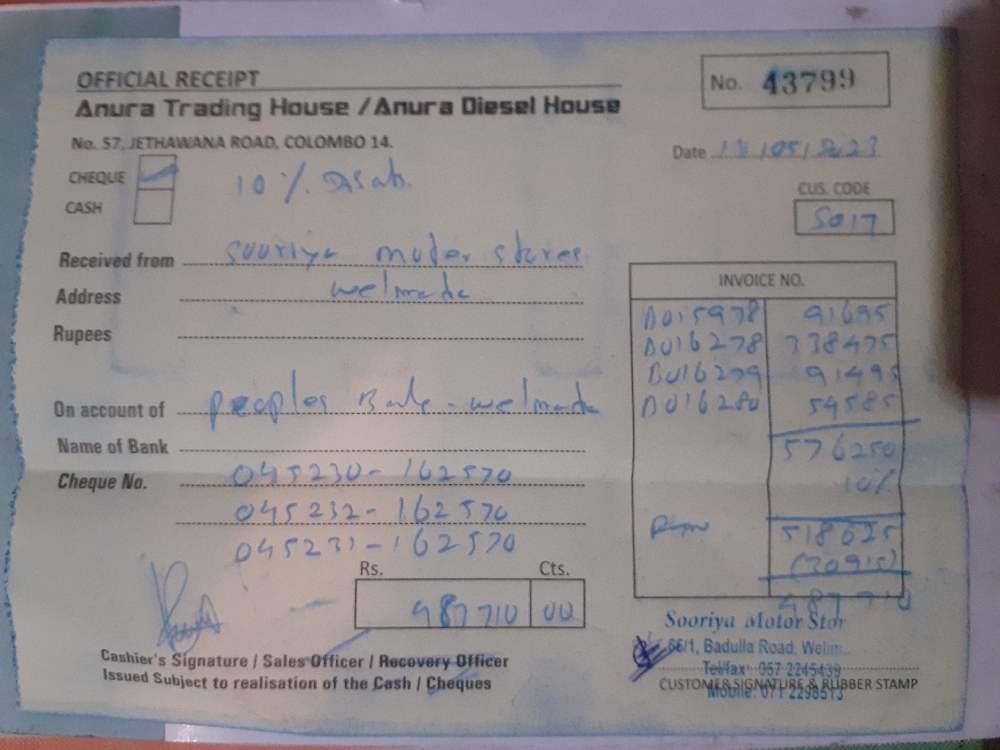 OFFICIAL RECEIPT
No. 43799
Anura Trading House / Anura Diesel House
No. 57, JETHAWANA ROAD, COLOMBO 14.
Date /05/2023
CHEQUE
10 %
CUS. CODE
CASH
5017
Received from Sooriya motor stores
INVOICE NO.
Address welmada
Rupees
BU15978 91695
BU16278 338475
BU16279 91495
BU16280 54585
On account of peoples Bank - welmada
576250
Name of Bank
10%
Cheque No. 045230 - 162570
045232 - 162570
518625
045231 - 162570
(30915)
Rs. Cts.
487710 00
487710
Sooriya Motor Stor
86/1, Badulla Road, Welim
Cashier's Signature / Sales Officer / Recovery Officer
Tel/fax: 057-2245439
Issued Subject to realisation of the Cash / Cheques
CUSTOMER SIGNATURE & RUBBER STAMP
Mobile: 071 2298513